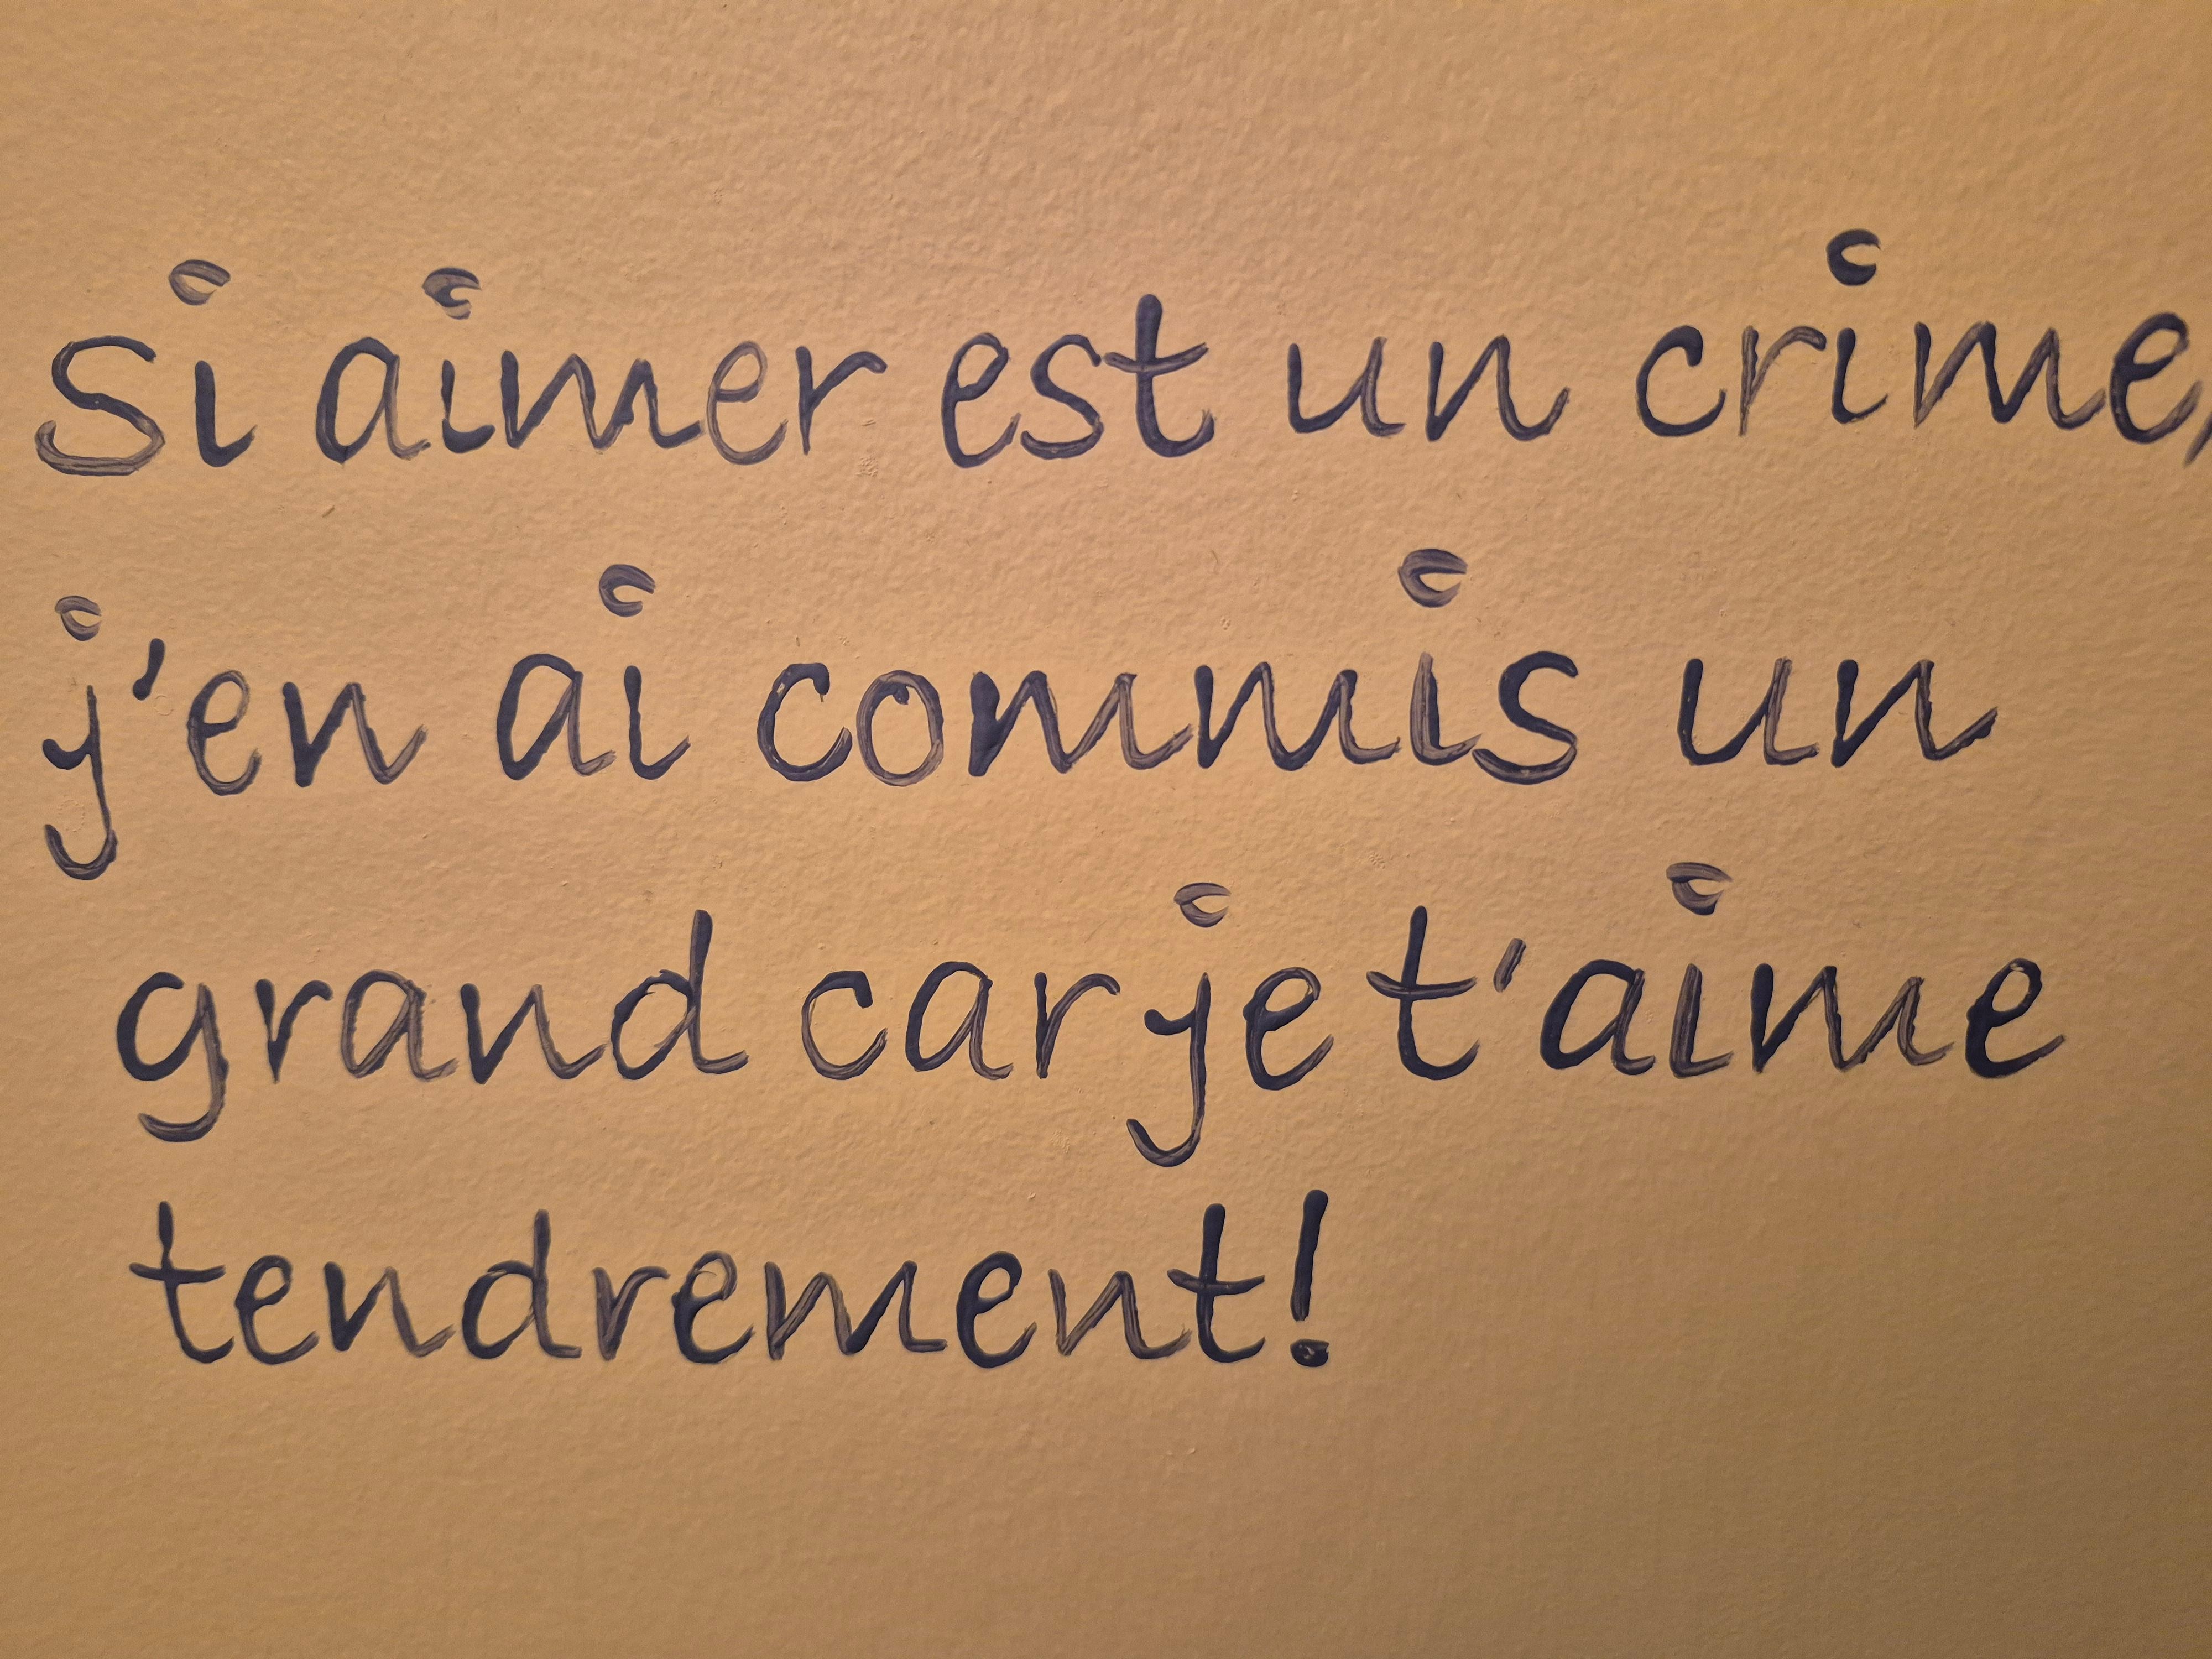 Si aimer est un crime,
j'en ai commis un
grand car je t'aime
tendrement!